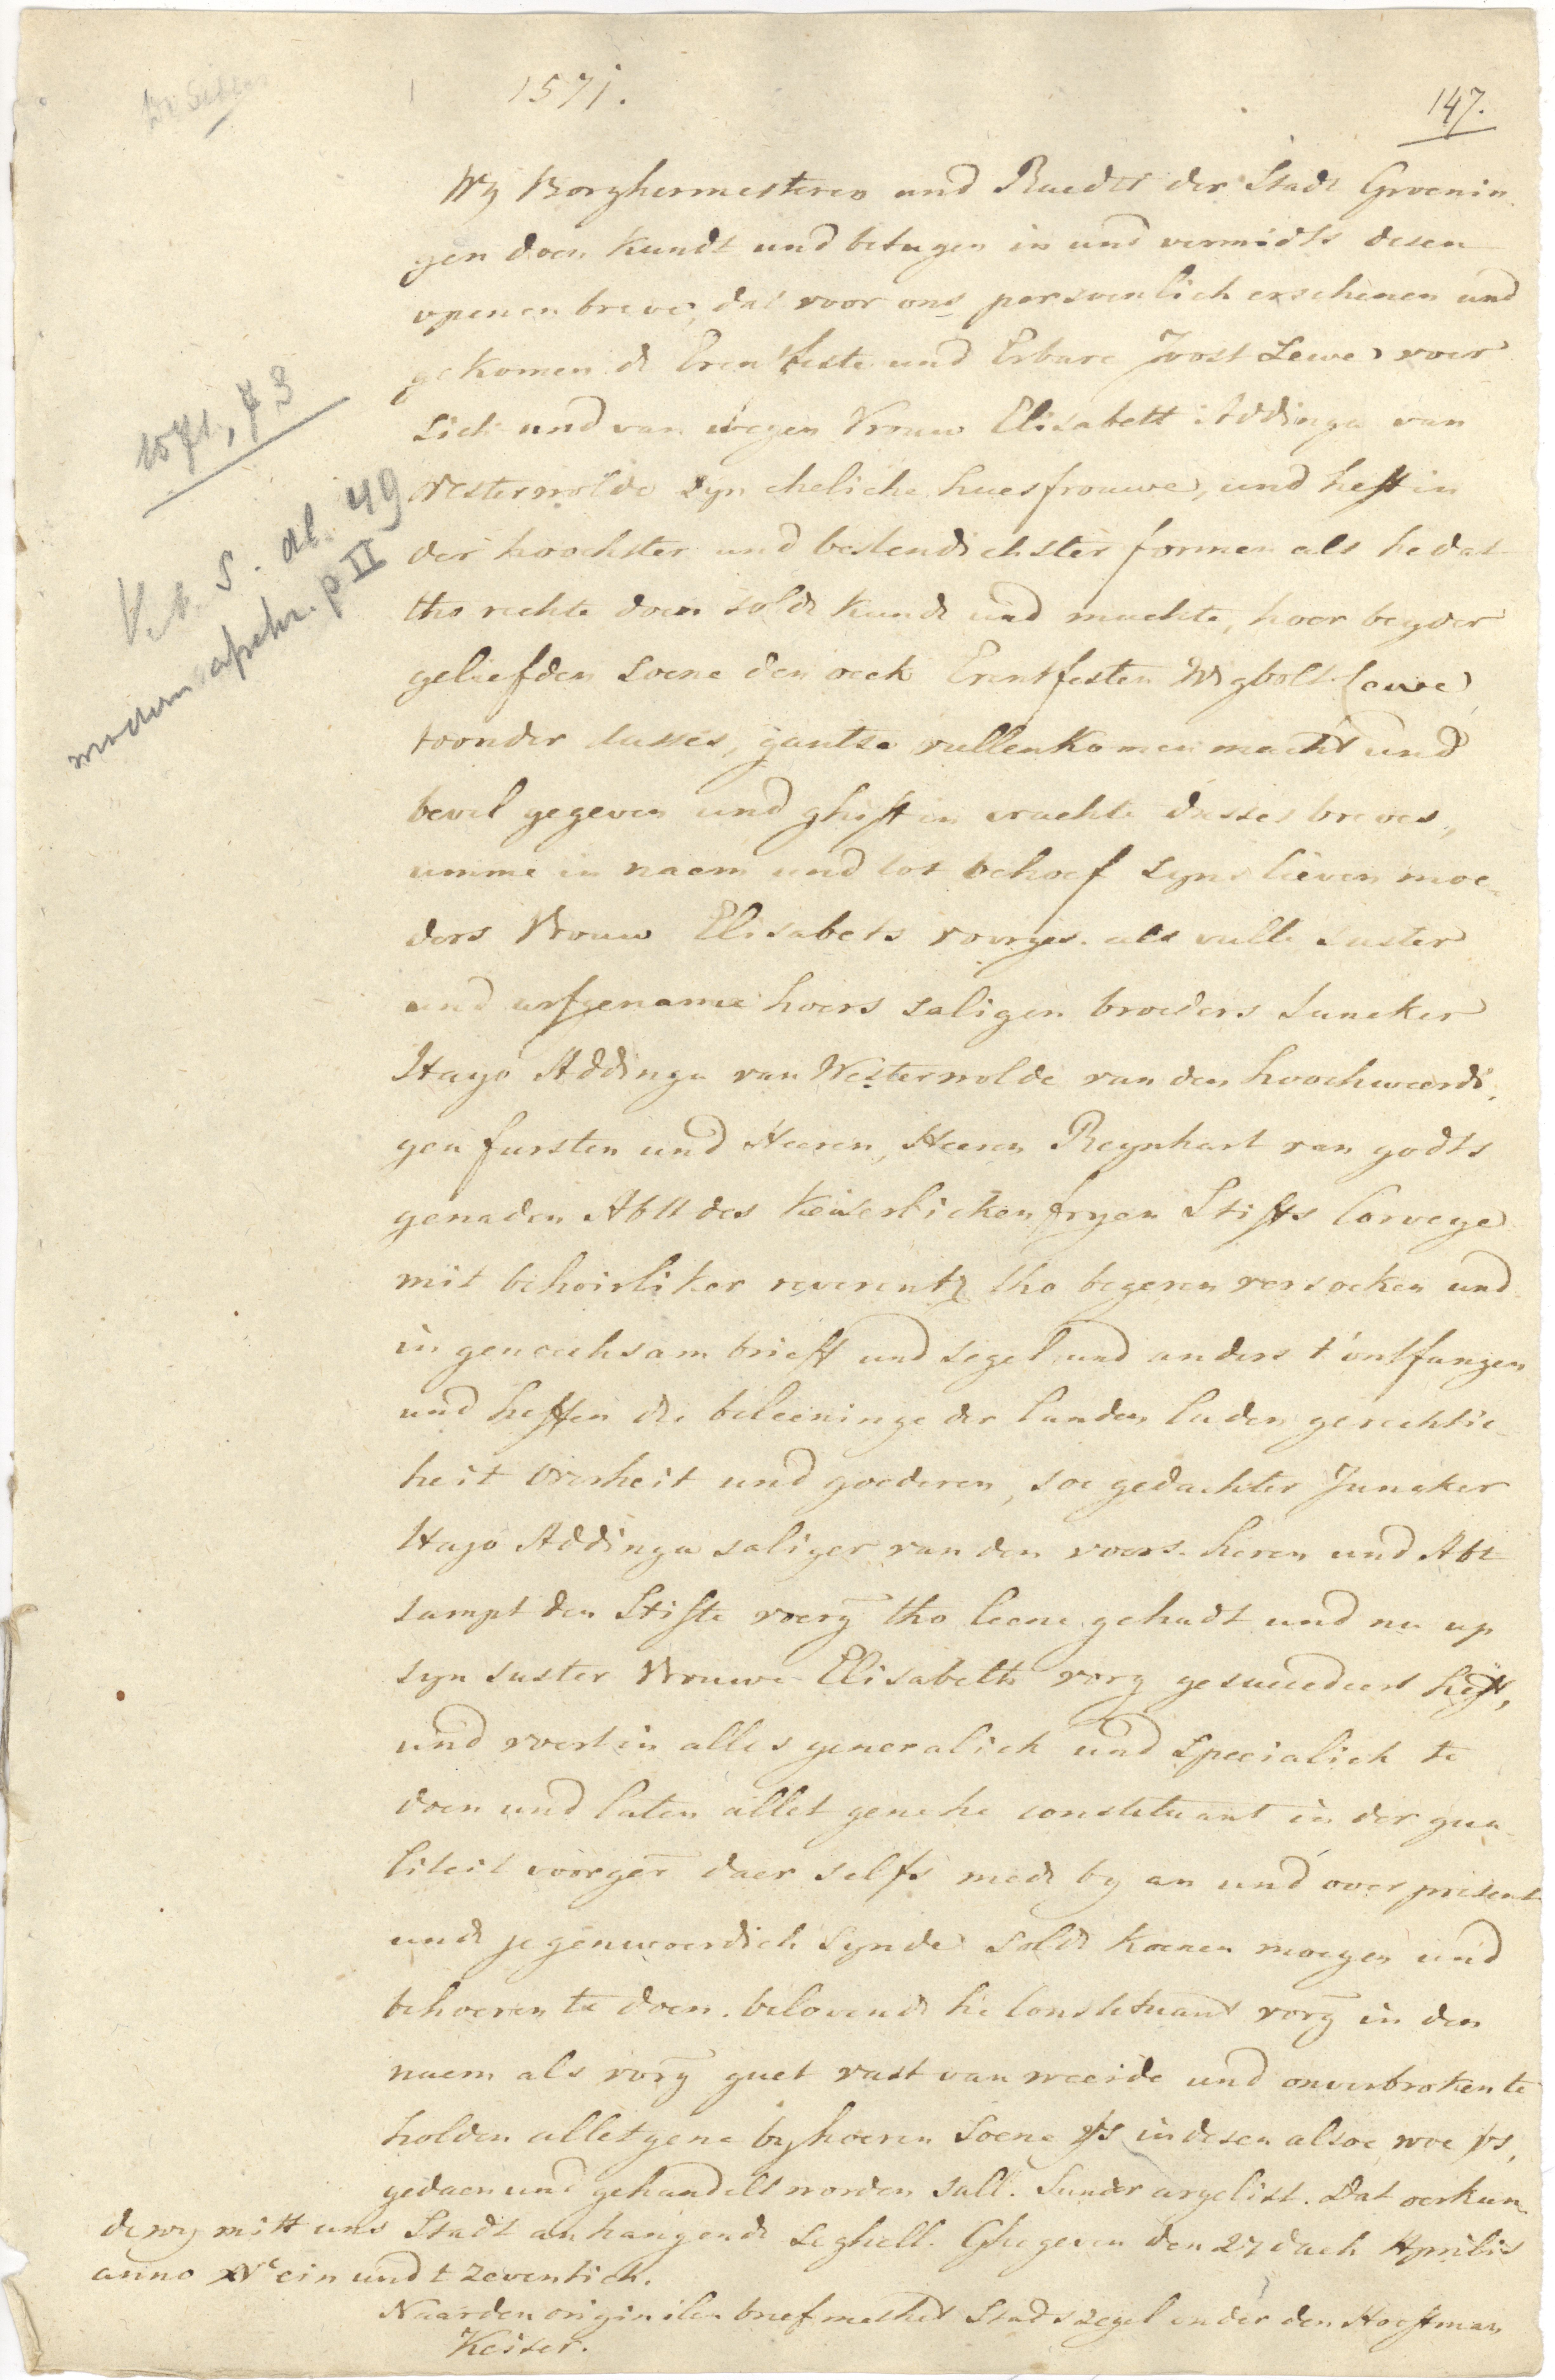 1571.
147.
Wy Borghermesteren und Raedtt der Stadt Groenin
gen doen Kundt und betugen in und vermidts desen
openen breve, dat voor ons persoenlich erschenen und
gekomen de Erentfeste und Erbare Joost Lewe voer
sich und van wegen Vrouw Elisabett Addinga van
Westerwolde syn eheliche huesfrouwe, und heft in
der hoochster und bestendichster formen als he dat
tho rechte doen solde kunde und muchte, hoer beyder
geliefden soene den oeck Erentfesten Wigbolt Leuwe,
toonder dusses, gantse vullenkomen macht und
bevel gegeven und ghift in crachte dusses breves,
umme in naem und tot behoef syns lieven moe-
ders Vrouw Elisabets voorges. als vulle suster
und erfgename hoers saligen broeders Juncker
Hayo Addinga van Westerwolde van den hoochweerdi,
gen fursten und Heeren, Heeren Reynhart van godts
genaden Abtt des Keiserlicken fryen Stifts Corveye
mit behoirliker reverentz tho begeren versoeken und
in genoechsam brieff und segel und anders t'ontfangen
und heffen die beleeninge der landen luden gerechtic-
heit overheit und goederen, soe gedachter Juncker
Hayo Addinga saliger van den voors. heren und Abt
sampt den Stifte voerg tho leene gehadt und nu up
syn suster Vrouwe Elisabeth vorg gesuccedeert heft,
und voert in alles generalich und specialich te
doen und laten allet gene he constituant in der qua-
liteit voorger daer selfs mede by an und over present
unde jegenwoerdich synde solde koenen moegen und
behoeren te doen. belovende he Constituant vorg in den
naem als vorg guet vast van weerde und onverbroken te
holden allet gene by hoeren soene vs in desen alsoe woe vs,
gedaen und gehandelt worden sall. Sunder argelist. Dat oerkun-
de wy mitt uns Stadt anhangende Seghell. Ghegeven den 27 dach Aprilis
anno XVc ein und tzeventich.
Naar den originilen brief met het Stads zegel onder den Hoeftman
Keiser.
1571, 73
s. dl. 49
modern p II